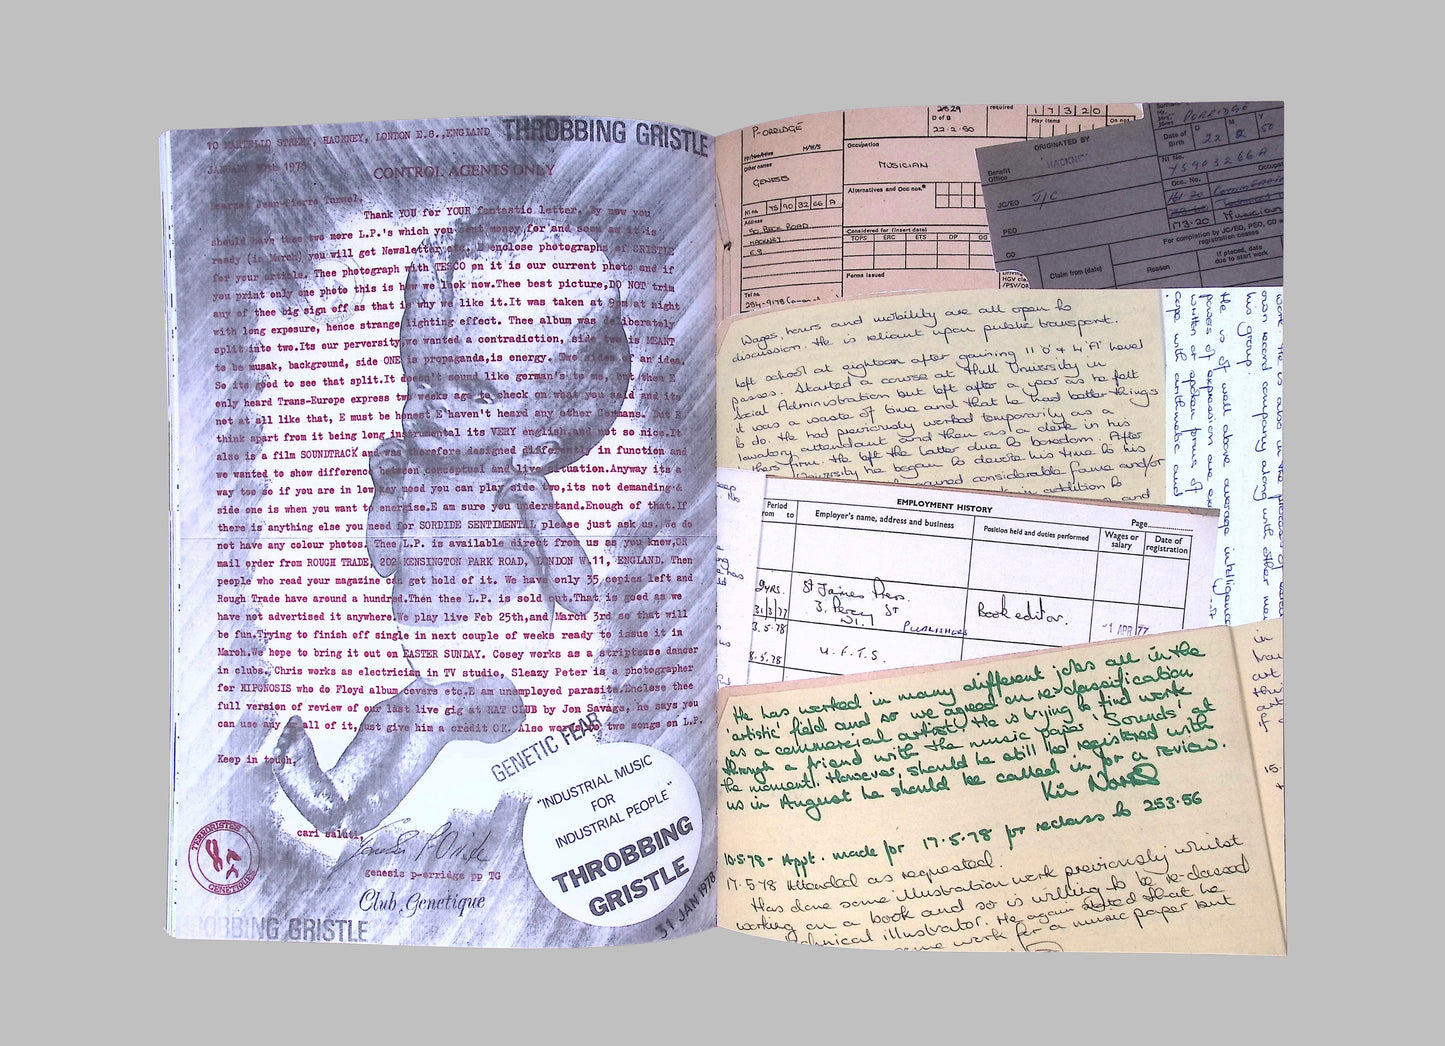 10 MARTELLO STREET, HACKNEY, LONDON E.8.,ENGLAND
THROBBING GRISTLE
JANUARY 30th 1978
CONTROL AGENTS ONLY
Dearest Jean-Pierre Turmel,
Thank YOU for YOUR fantastic letter. By now you
should have thee two more L.P.'s which you sent money for and soon as it is
ready (in March) you will get Newsletter etc. E enclose photographs of GRISTLE
for your article. Thee photograph with TESCO on it is our current photo and if
you print only one photo this is how we look now.Thee best picture,DO NOT trim
any of thee big sign off as that is why we like it.It was taken at 9pm at night
with long exposure, hence strange lighting effect. Thee album was deliberately
split into two.Its our perversity,we wanted a contradiction, side two is MEANT
to be musak, background, side ONE is propaganda,is energy. Two sides of an idea.
So its good to see that split.It doesn't sound like german's to me, but then E
only heard Trans-Europe express two weeks ago to check on what you said and its
not at all like that, E must be honest E haven't heard any other Germans. But E
think apart from it being long instrumental its VERY english,and not so nice.It
also is a film SOUNDTRACK and was therefore designed differently in function and
we wanted to show difference between conceptual and live situation.Anyway its a
way too so if you are in low key mood you can play side two,its not demanding &
side one is when you want to energise.E am sure you understand.Enough of that.If
there is anything else you need for SORDIDE SENTIMENTAL please just ask us. We do
not have any colour photos. Thee L.P. is available direct from us as you knew,OR
mail order from ROUGH TRADE, 202 KENSINGTON PARK ROAD, LONDON W.11, ENGLAND. Then
people who read your magazine can get hold of it. We have only 35 copies left and
Rough Trade have around a hundred.Then thee L.P. is sold out.That is good as we
have not advertised it anywhere.We play live Feb 25th,and March 3rd so that will
be fun.Trying to finish off single in next couple of weeks ready to issue it in
March.We hope to bring it out on EASTER SUNDAY. Cosey works as a striptease dancer
in clubs. Chris works as electrician in TV studio, Sleazy Peter is a photographer
for HIPGNOSIS who do Floyd album covers etc.E am unemployed parasite.Enclose thee
full version of review of our last live gig at RAT CLUB by Jon Savage, he says you
can use any or all of it,just give him a credit OK. Also words to two songs on L.P.
Keep in touch,
GENETIC FEAR
"INDUSTRIAL MUSIC
FOR
INDUSTRIAL PEOPLE"
THROBBING
GRISTLE
cari saluti,
Genesis P-Orridge
genesis p-orridge pp TG
Club Genetique
TERRORISTES
GENETIQUES
31 JAN 1978
THROBBING GRISTLE
P-ORRIDGE
Mr/Mrs/Miss M/W/S
Other names
GENESIS
NI no. YS 90 32 66 A
Address
50, BECK ROAD
HACKNEY
E.8.
Tel no.
254-9178
D of B
22-2-50
required
1 7 3 2 0
May items
Oc no.
Occupation
MUSICIAN
Alternatives and Occ nos.*
Considered for (insert date)
TOPS ERC ETS DP OG
Forms issued
HGV cl
/PSV/OR
ORIGINATED BY
Benefit
Office
HACKNEY
JC/EO
J/C
PEO
CO
Claim from (date)
Reason
If placed, date
due to start work
PORRIDGE
Date of
Birth
D M Y
22 2 50
NI No.
YS903266A
Occ. No.
Occupation
173-20 Musician
For completion by JC/EO, PEO, CO
registration ceases
Wages, hours and mobility are all open to
discussion. He is reliant upon public transport.
Left school at eighteen after gaining 11 'O' & 4 'A' Level
passes. Started a course at Hull University in
Social Administration but left after a year as he felt
it was a waste of time and that he had better things
to do. He had previously worked temporarily as a
lavatory attendant and then as a clerk in his
fathers firm. He left the latter due to boredom. After
University he began to devote his time to his
considerable fame and/or
in addition to
and
own record company along with other members of
his group.
He is of well above average intelligence
powers of expression are
written or spoken forms of
cope with arithmetic and
EMPLOYMENT HISTORY
Page
Period
from to
Employer's name, address and business
Position held and duties performed
Wages or
salary
Date of
registration
9 YRS.
31/3/77
St James Press.
3, Percy St
W.1
PUBLISHERS
Book editor.
-1 APR 77
3.5.78
8.5.78
U.F.T.S.
He has worked in many different jobs all in the
'artistic' field and so we agreed on re-classification
as a commercial artist. He is trying to find work
through a friend with the music paper 'Sounds' at
the moment. However, should he still be registered with
us in August he should be called in for a review.
10.5.78 - Appt. made for 17.5.78 for reclass to 253.56
17.5.78 Attended as requested.
Has done some illustration work previously whilst
working on a book and so is willing to be re-classed
technical illustrator. He again stated that he
some work for a music paper but